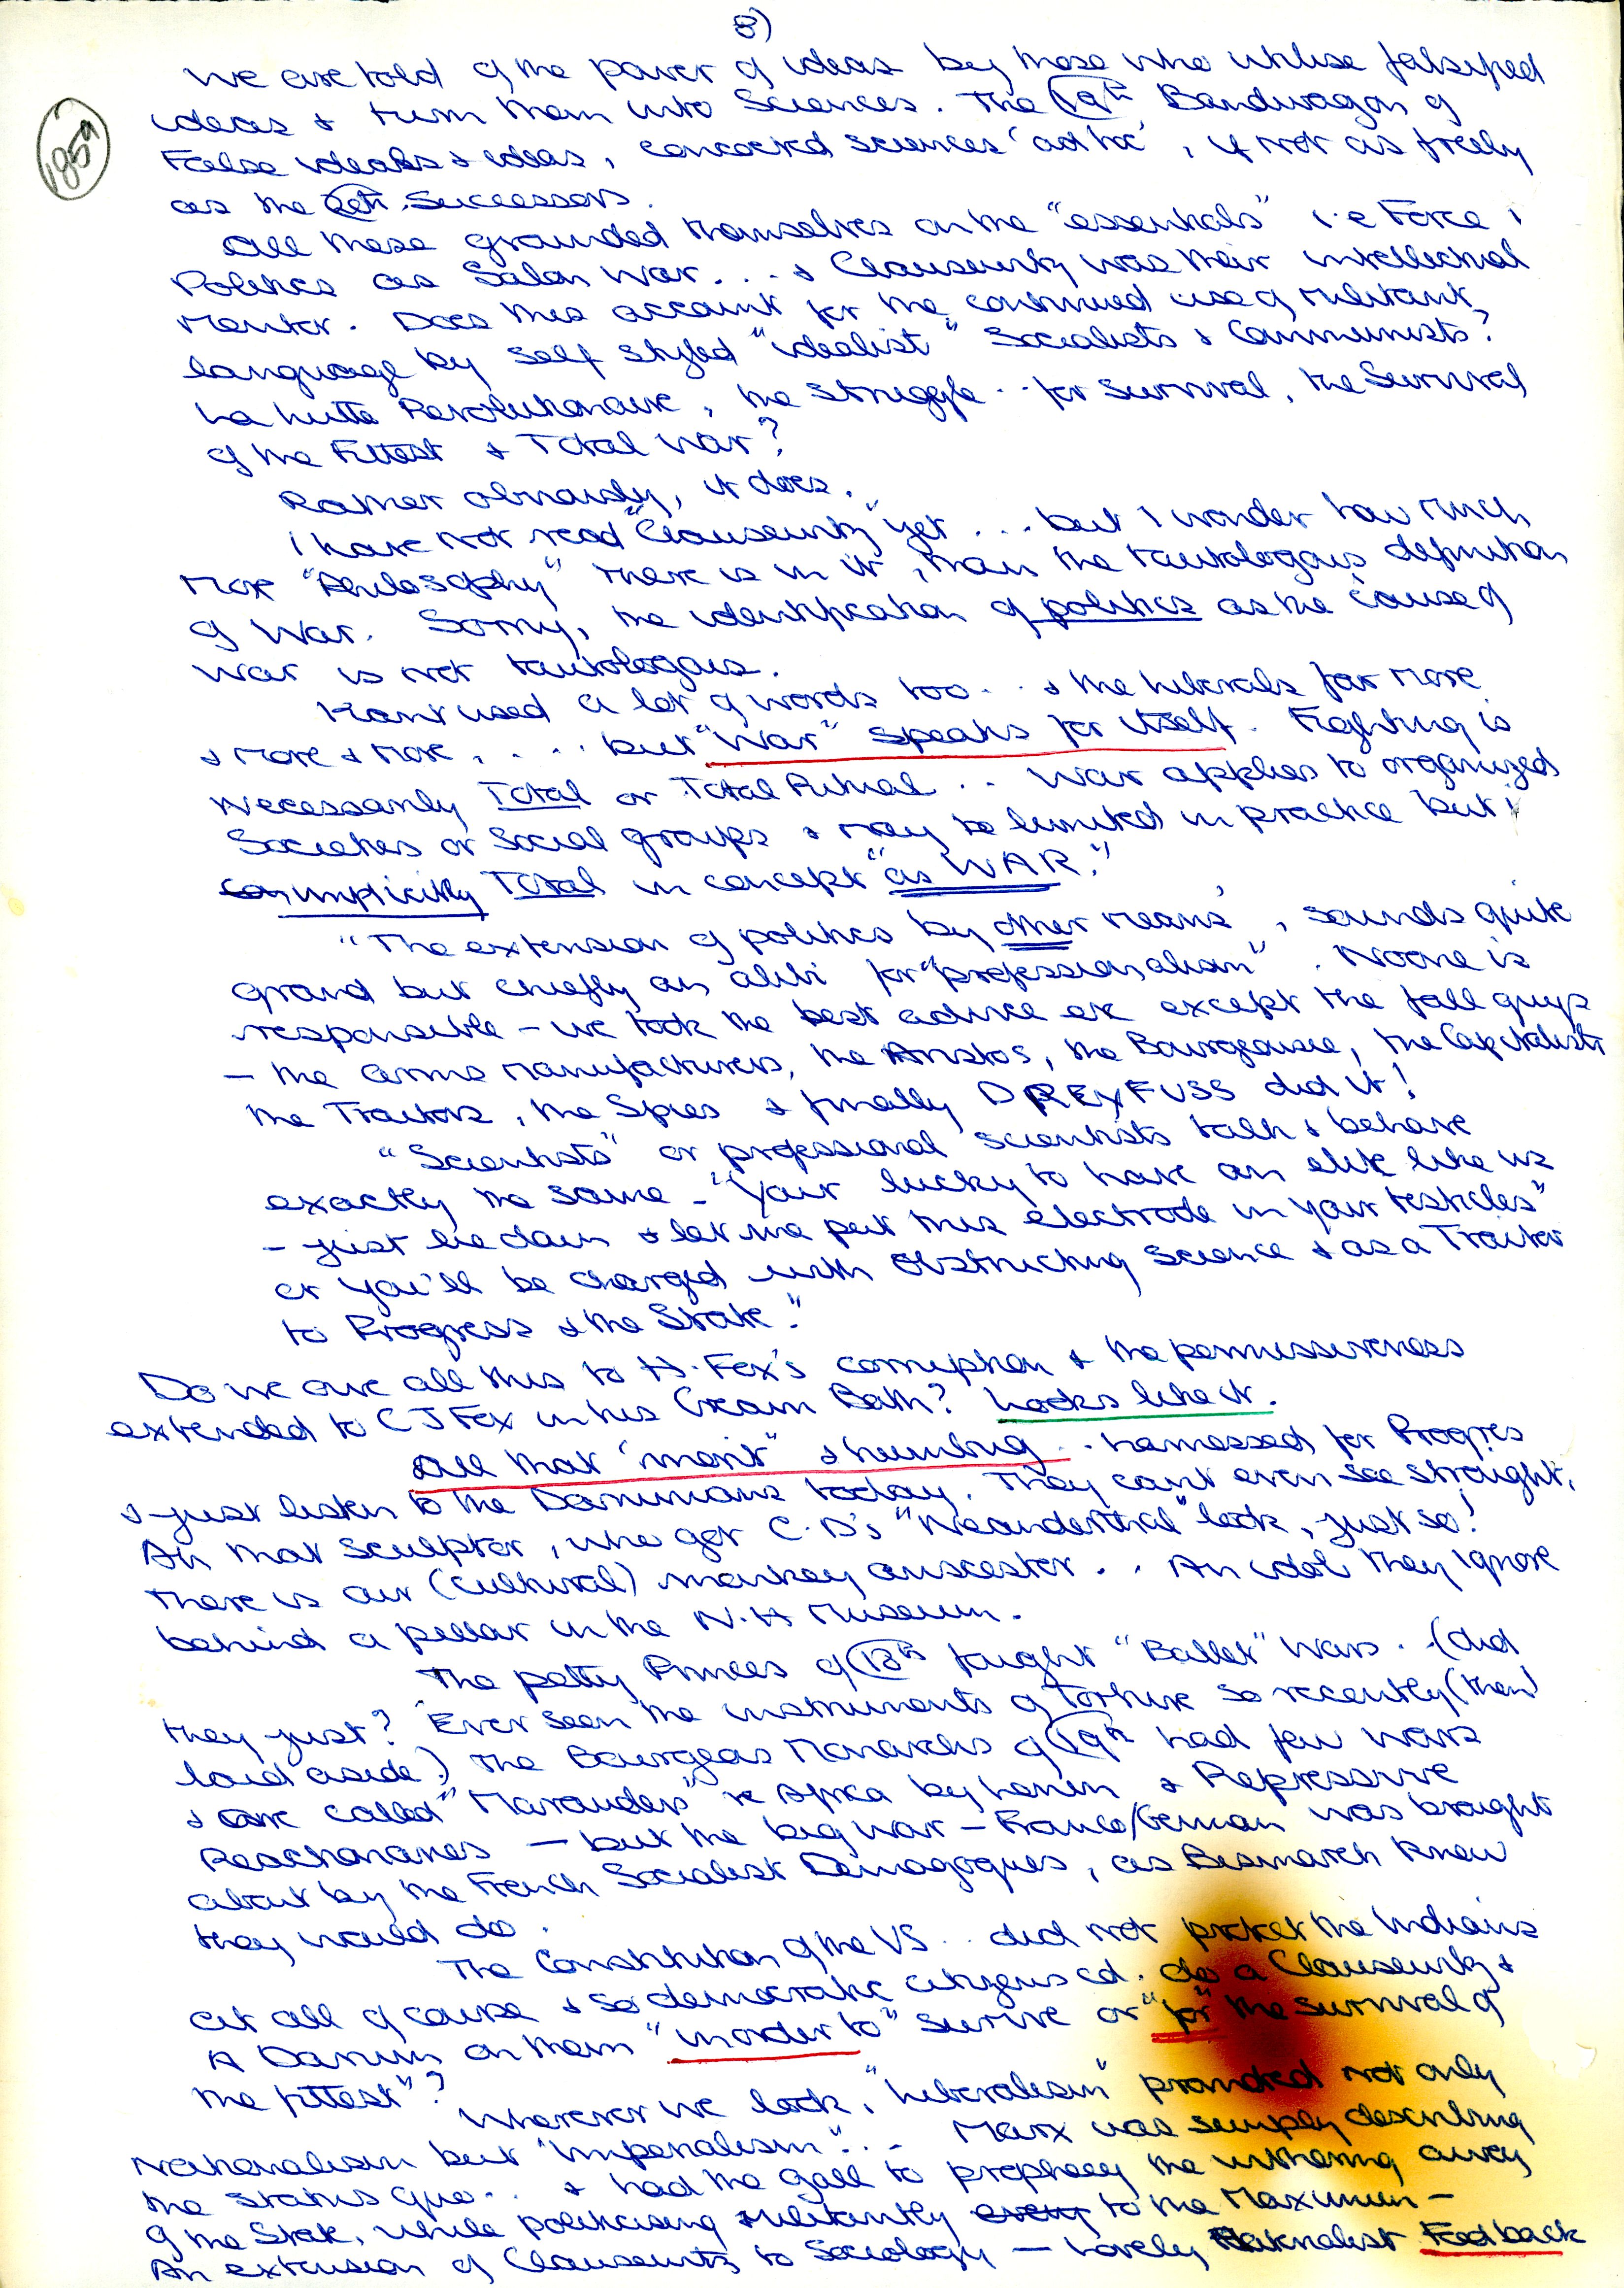 8)
We are told of the power of ideas by those who utilise falsified
1859
ideas & turn them into Sciences. The 19th Bandwagon of
False ideals & ideas, concocted sciences 'ad hoc', if not as freely
as the 20th Successors.
All these grounded themselves on the "essentials" i.e Force,
Politics as Salon War... & Clausewitz was their intellectual
Mentor. Does this account for the continued use of Militant
language by self styled "idealist" Socialists & Communists?
La lutte Revolutionaire, the struggle.. for survival, the Survival
of the Fittest & Total War?
Rather obviously, it does.
I have not read "Clausewitz" yet ... but I wonder how much
more "Philosophy" there is in it, than the tautologous definition
of War. Sorry, the identification of politics as the cause of
War is not tautologous.
Kant used a lot of words too.. & the liberals far more
& more & more, ... but "War" speaks for itself. Fighting is
necessarily Total or Total Ritual.. War applies to organized
Societies or Social groups & may be limited in practice but
implicitly Total in concept "as WAR."
"The extension of politics by other means', sounds quite
grand but chiefly an alibi for "professionalism". Noone is
responsible - we took the best advice etc except the fall guys
- the arms manufacturers, the Aristos, the Bourgeousie, the Capitalists
the Traitors, the Spies & finally DREYFUSS did it!
"Scientists" or professional scientists talk & behave
exactly the same - "Your lucky to have an elite like us
- just lie down & let me put this electrode in your testicles"
or you'll be charged with obstructing Science & as a Traitor
to Progress & the State."
Do we owe all this to H. Fox's corruption & the permissiveness
extended to C J Fox in his Cream Bath? Looks like it.
All that 'merit" & humbug.. harnessed for Progres
& just listen to the Darwinians today. They cant even see straight.
Ah that sculptor, who got C.D's "Neanderthal" look, just so!
There is our (cultural) monkey anscester.. An idol they ignore
behind a pillar in the N.H Museum.
The petty Princes of 18th fought "Ballet" Wars. (did
they just? Ever seen the instruments of torture so recently (then)
laid aside.) The Bourgeois Monarchs of 19th had few wars
& are called "Marauders" re Africa by Lenin & Repressive
Reactionaries - but the big war - France/German was brought
about by the French Socialist Demagogues, as Bismarck knew
they would do.
The Constitution of the US.. did not protect the Indians
at all of course & so democratic citizens cd. do a Clausewitz &
A Darwin on them "in order to" survive or "for" the survival of
the fittest"?
Wherever we look, "Liberalism" promoted not only
Nationalism but "Imperialism"... Marx was simply describing
the status quo... & had the gall to prophecy the withering away
of the State, while politicising militantly to the Maximum -
An extension of Clausewitz to Sociology - Lovely Feedback